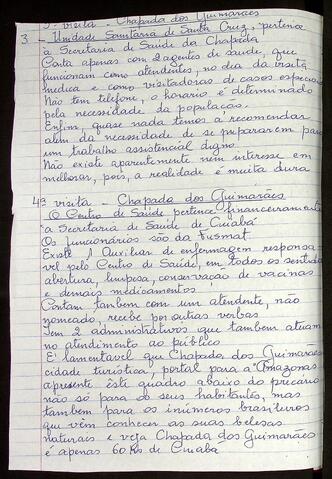 3ª visita - Chapada dos Guimarães
3. - Unidade Sanitária de Santa Cruz, pertence
a Secretaria de Saúde da Chapada
Conta apenas com 2 agentes de saúde, que
funcionam como atendentes, no dia da visita
medica e como visitadoras de casos especiais
Não tem telefone, o horario é determinado
pela necessidade da população.
Enfim, quase nada temos a recomendar
além da necessidade de se prepararem para
um trabalho assistencial digno.
Não existe aparentemente nem interesse em
melhorar, pois, a realidade é muita dura
4ª visita - Chapada dos Guimarães
O Centro de Saúde pertence financeiramente
a Secretaria de Saúde de Cuiabá
Os funcionários são da Fusmat.
Existe 1 Auxiliar de enfermagem responsa-
vel pelo Centro de Saúde, em todos os sentidos
abertura, limpesa, conservação de vacinas
e demais medicamentos
Contam tambem com um atendente, não
nomeado, recebe por outras verbas
Tem 2 administrativos que tambem atuam
no atendimento ao público
É lamentavel que Chapada dos Guimarães
cidade turística, portal para a Amazonas
apresente êste quadro abaixo do precario
não só para os seus habitantes, mas
tambem para os inúmeros brasileiros
que vêm conhecer as suas belesas
naturais e veja Chapada dos Guimarães
é apenas 60 Km de Cuiabá